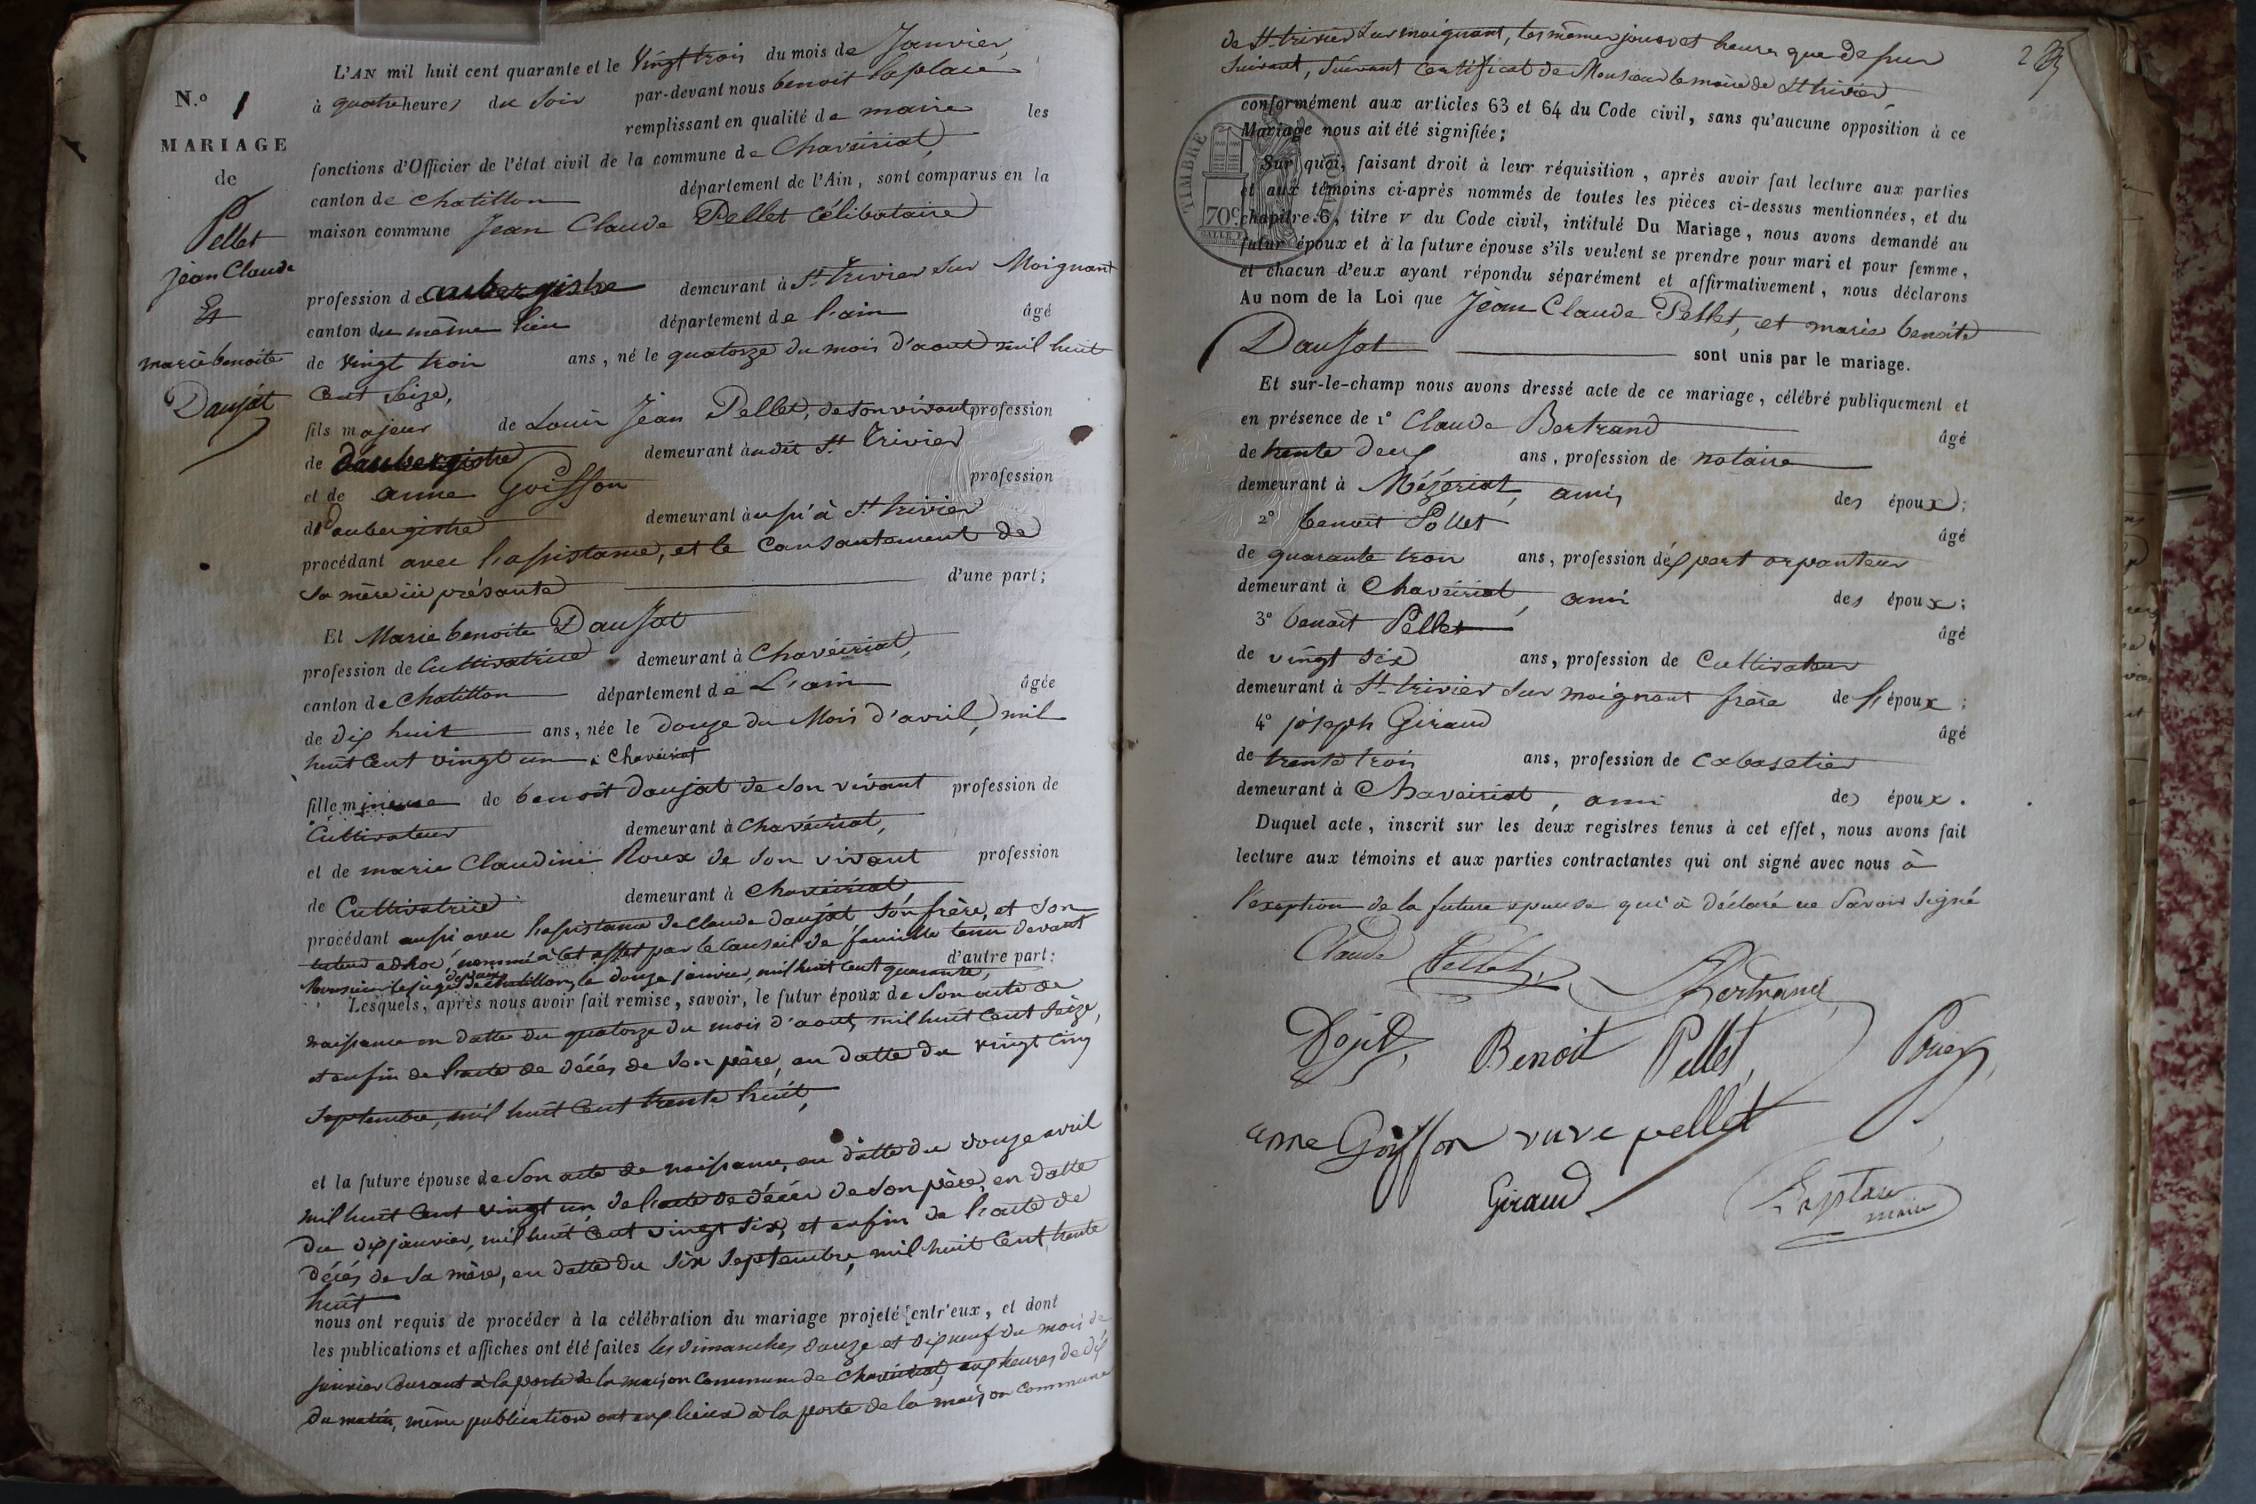 N.º 1
MARIAGE
de
Pellet
jean Claude
Et
marie benoite
Daujat
L'AN mil huit cent quarante et le vingt trois du mois de Janvier,
à quatre heures du soir par-devant nous benoit laplace
remplissant en qualité de maire les
fonctions d'Officier de l'état civil de la commune de Chaveiriat,
canton de chatillon département de l'Ain, sont comparus en la
maison commune Jean Claude Pellet célibataire
profession de aubergiste demeurant à St. trivier sur Moignant
canton du même lieu département de l'ain âgé
de vingt trois ans, né le quatorze du mois d'aout mil huit
cent seize,
fils majeur de Louis Jean Pellet, de son vivant profession
de d'aubergiste demeurant audit St. Trivier
et de anne Goiffon profession
d'aubergiste demeurant aussi à St. trivier
procédant avec l'assistance, et le consantement de
sa mère ici présante d'une part;
Et Marie benoite Daujat
profession de Cultivatrice demeurant à Chavéiriat,
canton de chatillon département de L'ain âgée
de dix huit ans, née le douze du Mois d'avril, mil
huit cent vingt un à Chaveiriat
fille mineure de benoit daujat de son vivant profession de
Cultivateur demeurant à chavéiriat,
et de marie Claudine Roux de son vivant profession
de Cultivatrice demeurant à chaveiriat
procédant aussi avec l'assistance de Claude daujat son frère, et son
tuteur adhoc, nommé à cet effet par le conseil de famille tenu devant
Monsieur le juge de paix de chatillon, le douze janvier, mil huit cent quarante, d'autre part:
Lesquels, après nous avoir fait remise, savoir, le futur époux de son acte de
naissance en datte du quatorze du mois d'aout, mil huit cent seize,
et enfin de l'acte de décés de son père, en datte du vingt cinq
septembre, mil huit cent trente huit,
et la future épouse de son acte de naissance, en datte du douze avril
mil huit cent vingt un, de l'acte de décés de son père, en datte
du dix janvier, mil huit cent vingt six, et enfin de l'acte de
décés de sa mère, en datte du six septembre, mil huit cent trente
huit
nous ont requis de procéder à la célébration du mariage projeté entr'eux, et dont
les publications et affiches ont été faites les dimanches douze et dix neuf du mois de
janvier courant à la porte de la maison commune de chavéiriat, aux heures de dix
du matin, même publication ont eu lieux à la porte de la maison commune
de St. trivier sur moignant, les mêmes jours et heures que de sus
suivant, suivant certificat de Monsieur le maire de St. trivier,
conformément aux articles 63 et 64 du Code civil, sans qu'aucune opposition à ce
Mariage nous ait été signifiée;
TIMBRE
70c
Sur quoi, faisant droit à leur réquisition, après avoir fait lecture aux parties
et aux témoins ci-après nommés de toutes les pièces ci-dessus mentionnées, et du
chapitre 6, titre v du Code civil, intitulé Du Mariage, nous avons demandé au
futur époux et à la future épouse s'ils veulent se prendre pour mari et pour femme,
et chacun d'eux ayant répondu séparément et affirmativement, nous déclarons
Au nom de la Loi que Jean Claude Pellet, et marie benoite
Daujat sont unis par le mariage.
Et sur-le-champ nous avons dressé acte de ce mariage, célébré publiquement et
en présence de 1º Claude Bertrand âgé
de trente deux ans, profession de notaire
demeurant à Mézériat, ami, des époux;
2º benoit Pollet âgé
de quarante trois ans, profession d'expert arpanteur
demeurant à Chaveiriat, ami des époux;
3º benoit Pellet âgé
de vingt six ans, profession de Cultivateur
demeurant à St. trivier sur moignant frère de l'époux;
4º joseph Giraud âgé
de trente trois ans, profession de cabaretier
demeurant à Chaveiriat, ami des époux.
Duquel acte, inscrit sur les deux registres tenus à cet effet, nous avons fait
lecture aux témoins et aux parties contractantes qui ont signé avec nous à
l'exception de la future épouse qui a déclaré ne savoir signé
Claude Pellet, Bertrand
Benoit Pellet,
anne Goiffon veuve pellet
Giraud
Laplace
maire